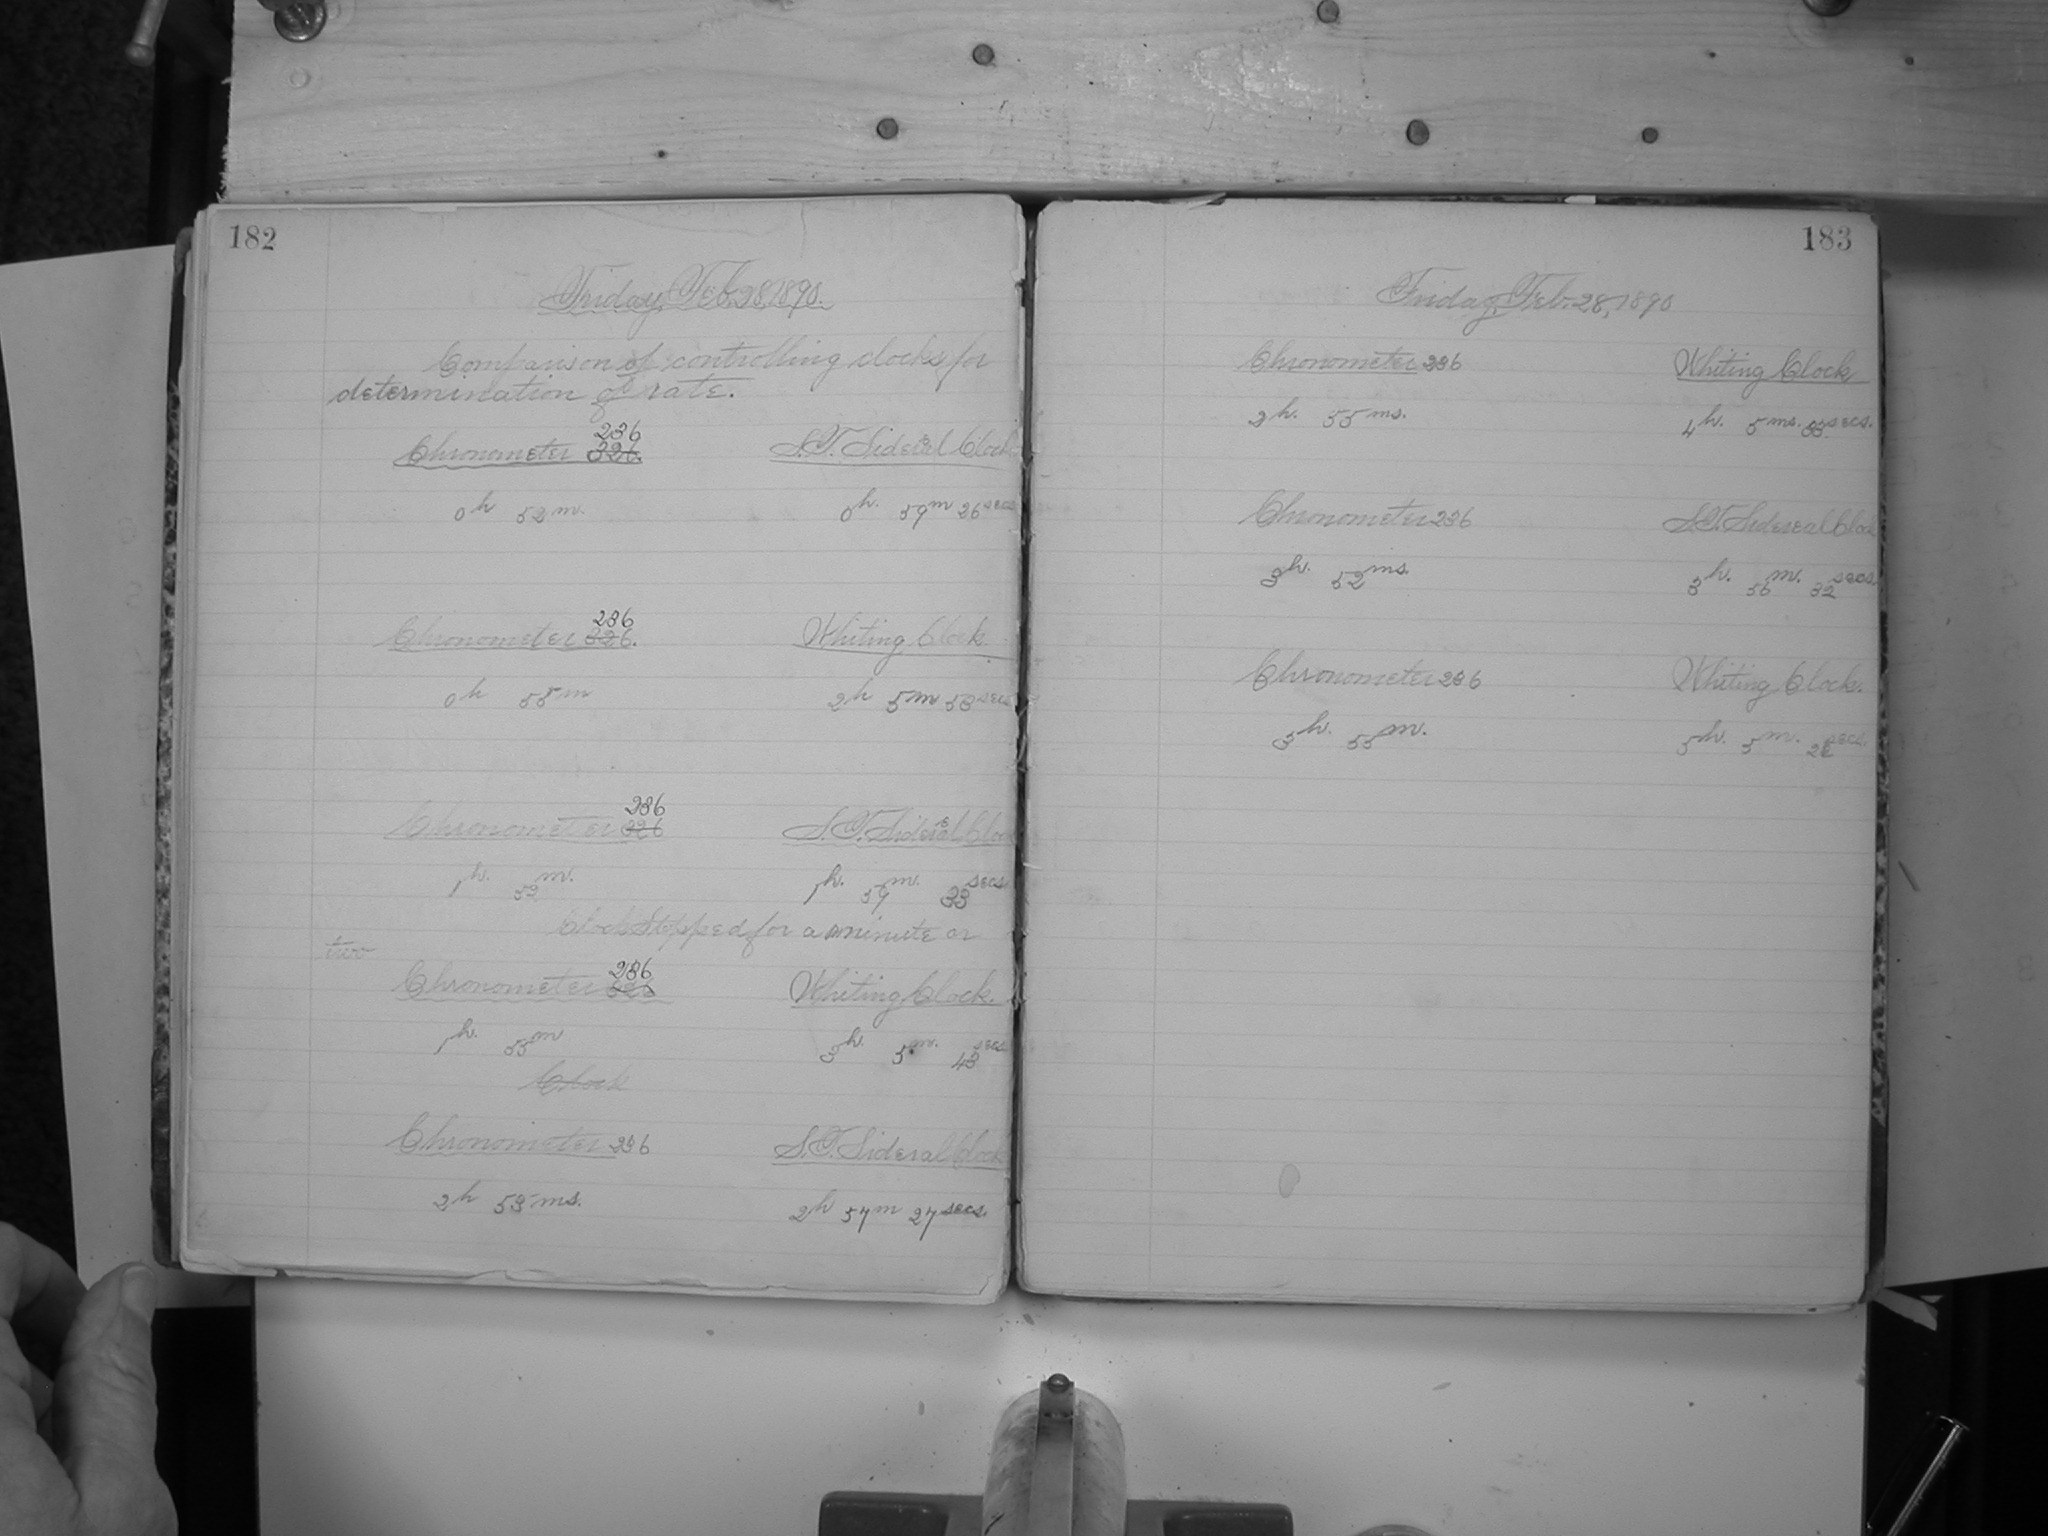 182
Friday, Feb. 28, 1890.
Comparison of controlling clocks for
determination of rate.
236
Chronometer 326. S.T. Sidereal Clock
0h 52m. 0h. 59m 26secs
236
Chronometer 326. Whiting Clock
0h 55m 2h 5m 53secs
236
Chronometer 326 S.T. Sidereal Clock
1h. 52m. 1h. 59m. 33secs
Clock stopped for a minute or
two
236
Chronometer 326 Whiting Clock.
1h. 55m 3h. 5m. 43secs
Clock
Chronometer 236 S.T. Sideral Clock
2h 53ms. 2h 57m 27secs.
183
Friday, Feb. 28, 1890
Chronometer 236 Whiting Clock
2h. 55ms. 4h. 5ms. 33secs.
Chronometer 236 S.T. Sidereal Clock
3h. 52ms. 3h. 56m. 32secs.
Chronometer 236 Whiting Clock.
3h. 55m. 5h. 5m. secs.